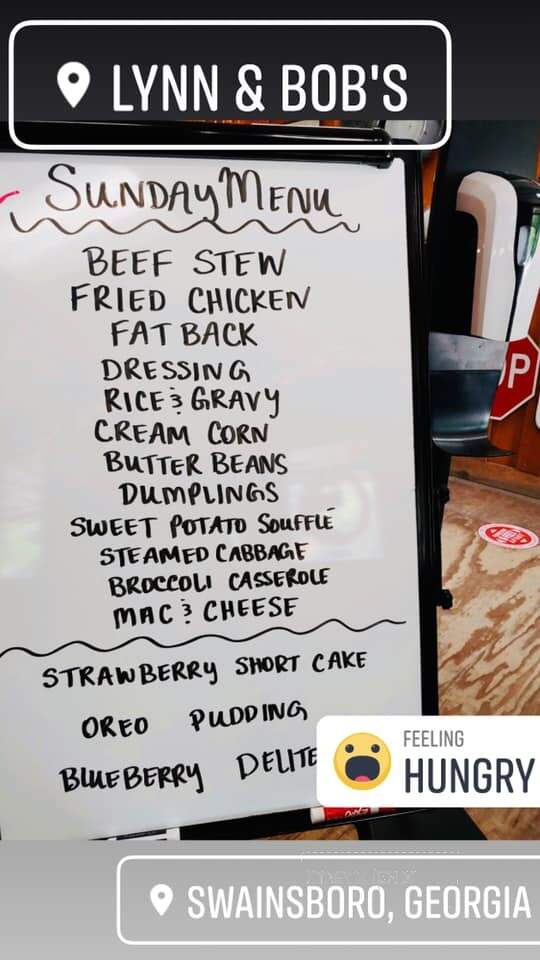 LYNN & BOB'S
SUNDAY MENU
BEEF STEW
FRIED CHICKEN
FAT BACK
DRESSING
RICE & GRAVY
CREAM CORN
BUTTER BEANS
DUMPLINGS
SWEET POTATO SOUFFLÉ
STEAMED CABBAGE
BROCCOLI CASSEROLE
MAC & CHEESE
STRAWBERRY SHORT CAKE
OREO PUDDING
BLUEBERRY DELITE
OP
FEELING
HUNGRY
SWAINSBORO, GEORGIA